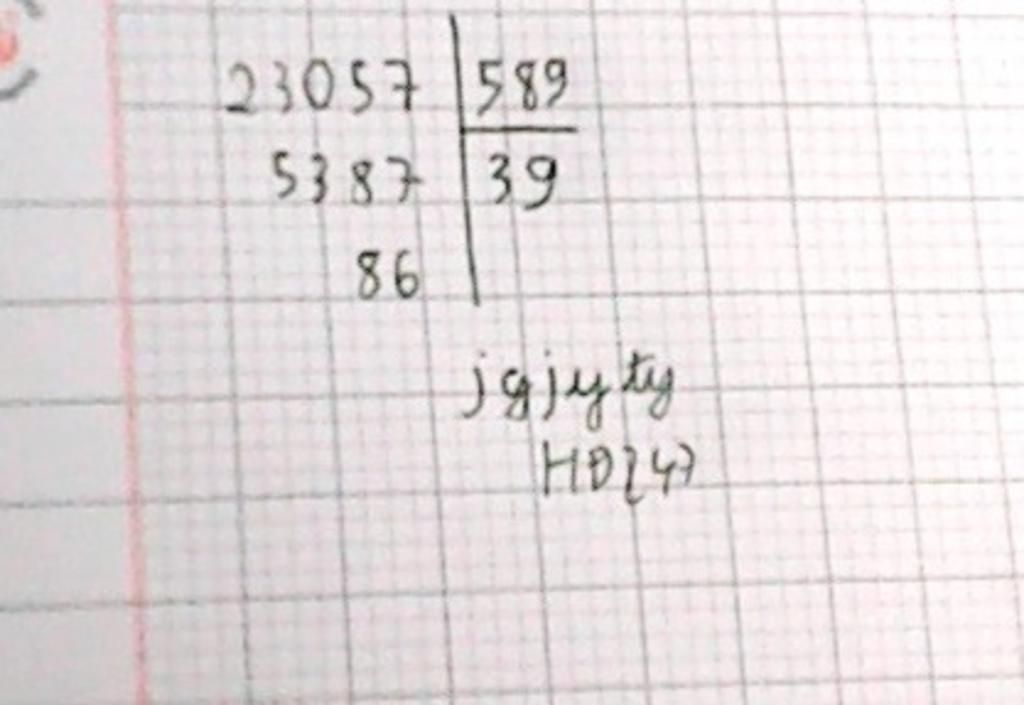 23057 589
5387 39
86
jgjyty